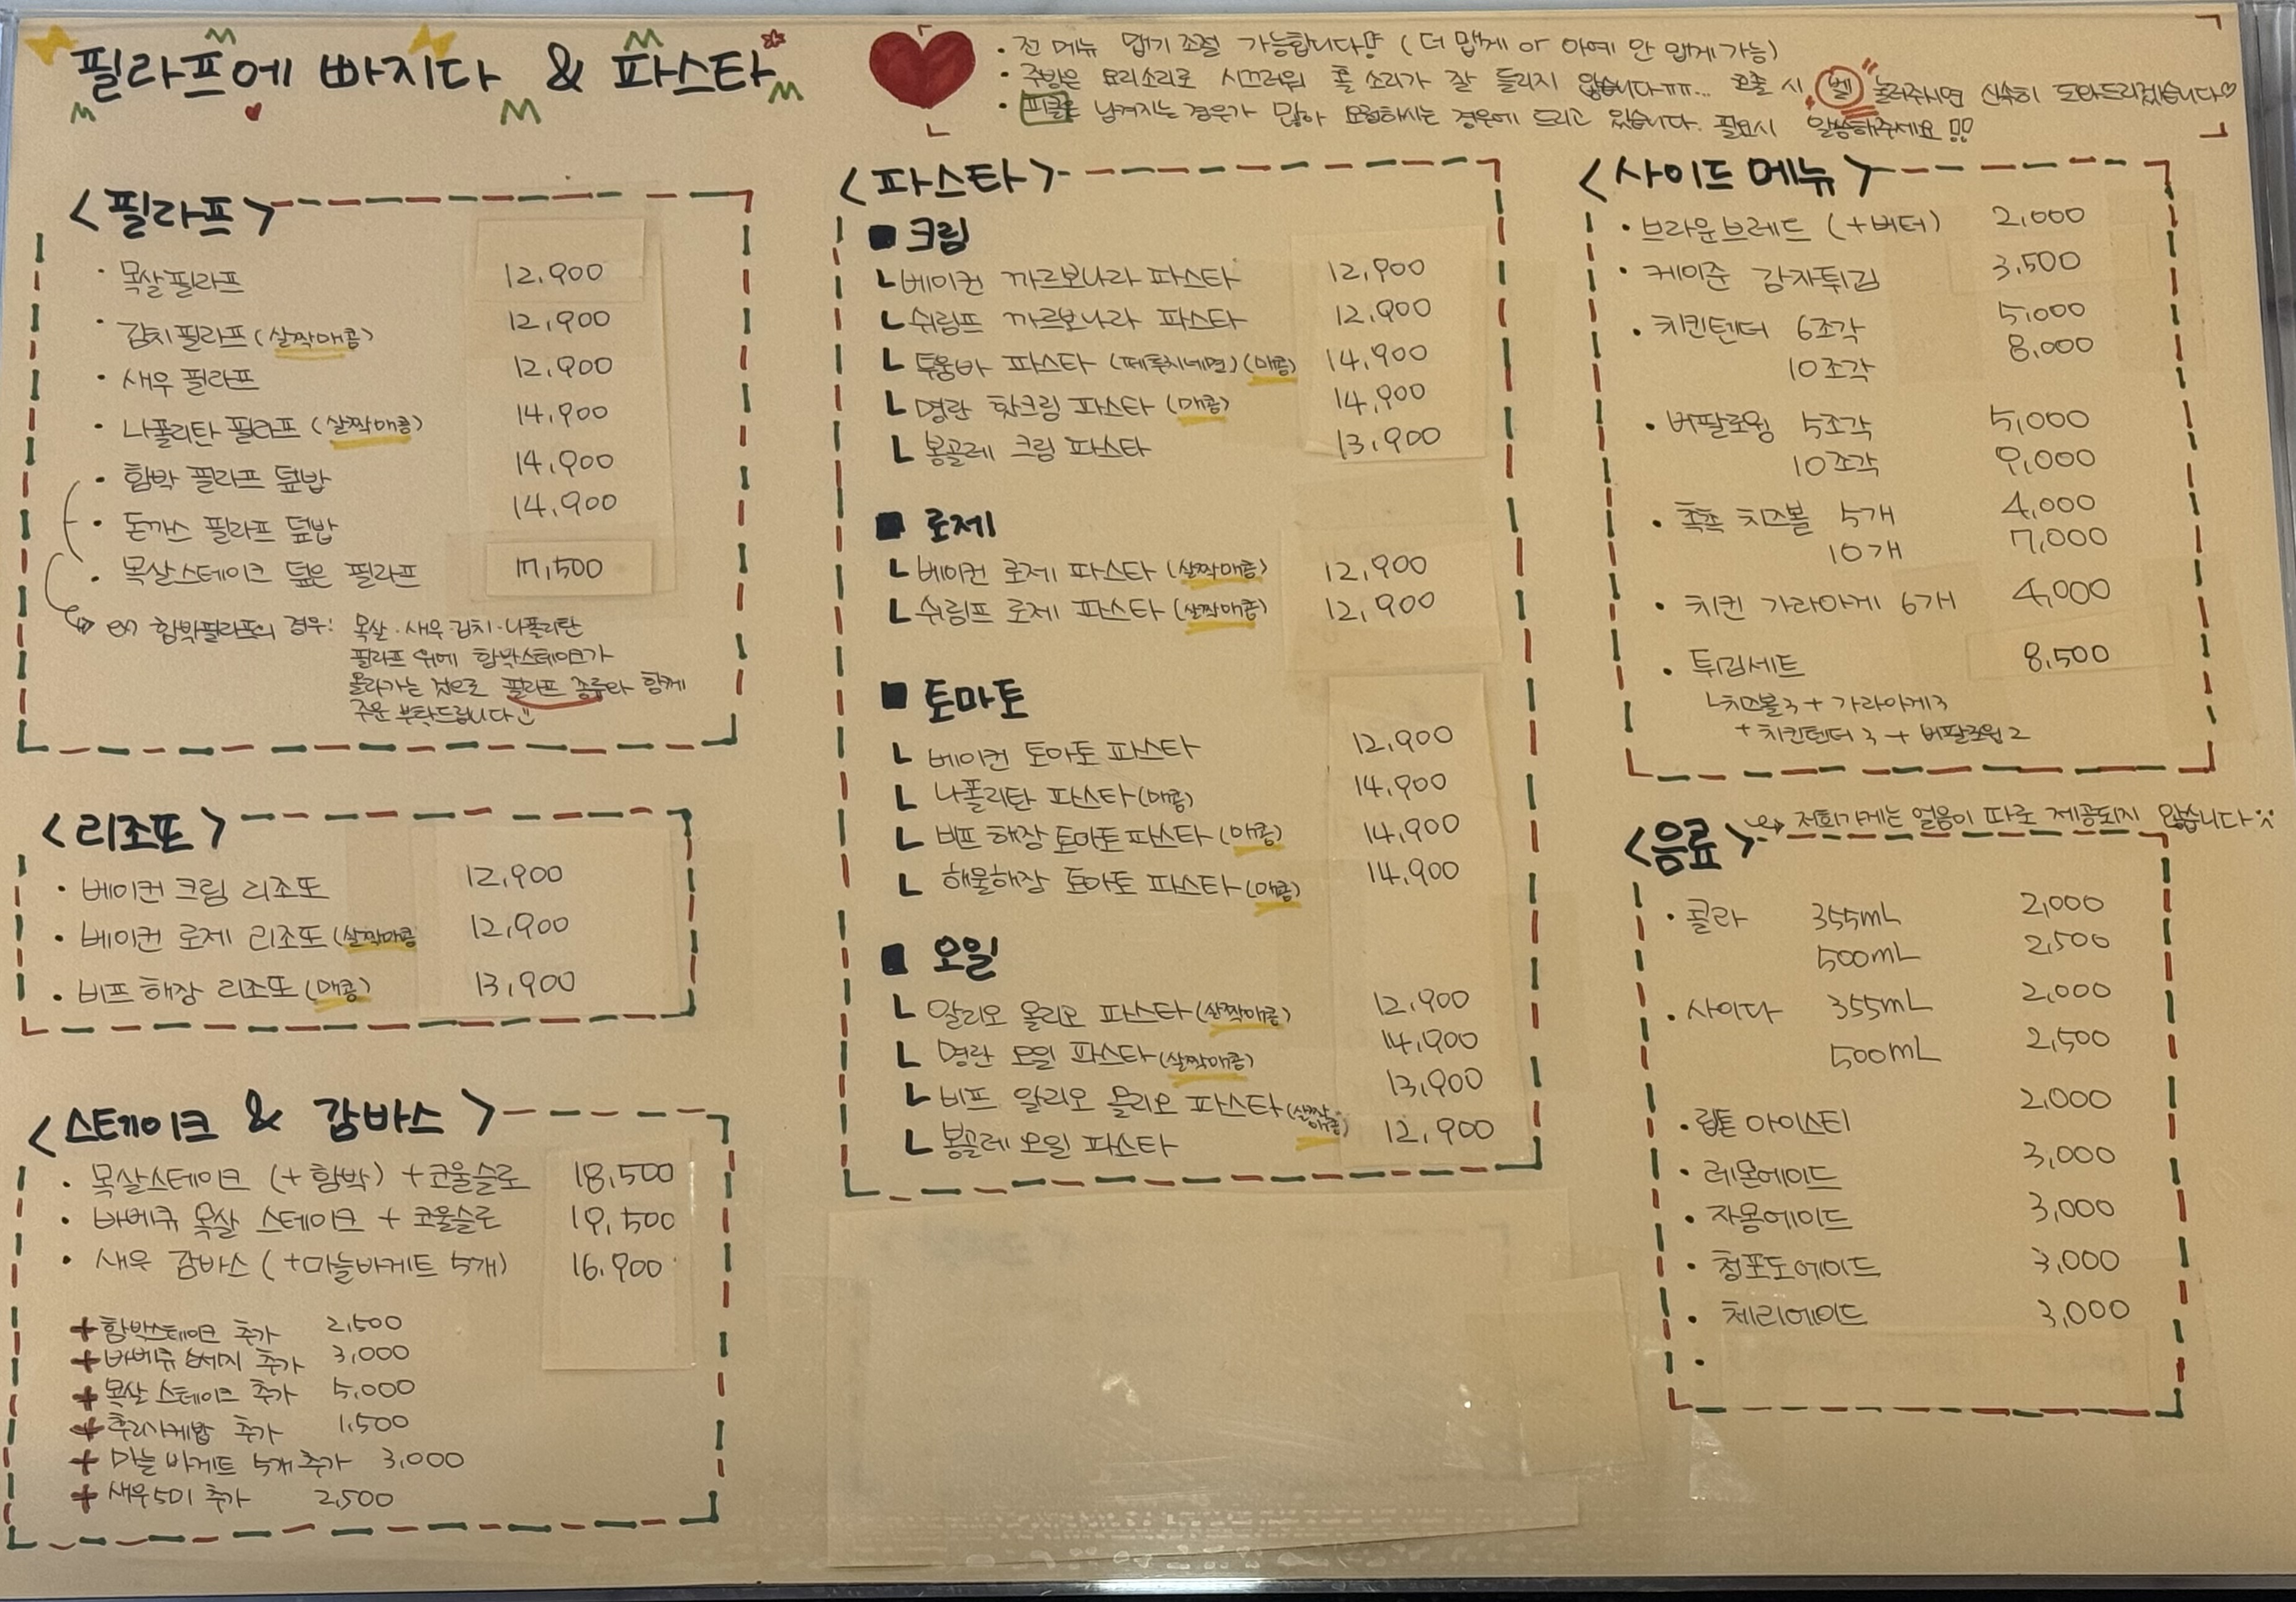 필라프에 빠지다 & 파스타
· 전 메뉴 맵기 조절 가능합니다!! (더 맵게 or 아예 안 맵게 가능)
· 주방은 요리소리로 시끄러워 홀 소리가 잘 들리지 않습니다ㅠㅠ... 호출 시, "벨" 눌러주시면 신속히 도와드리겠습니다♡
· 피클은 남겨지는 경우가 많아 요청하시는 경우에 드리고 있습니다. 필요시 말씀해주세요!!
<필라프>
· 목살필라프 12,900
· 김치필라프 (살짝매콤) 12,900
· 새우 필라프 12,900
· 나폴리탄 필라프 (살짝매콤) 14,900
· 함박 필라프 덮밥 14,900
· 돈까스 필라프 덮밥 14,900
· 목살스테이크 덮은 필라프 17,500
ex) 함박필라프의 경우: 목살·새우·김치·나폴리탄
필라프 위에 함박스테이크가
올라가는 것으로 필라프 종류와 함께
주문 부탁드립니다
<리조또>
· 베이컨 크림 리조또 12,900
· 베이컨 로제 리조또 (살짝매콤 12,900
· 비프 해장 리조또 (매콤) 13,900
<스테이크 & 감바스>
· 목살스테이크 (+함박) + 코울슬로 18,500
· 바베큐 목살 스테이크 + 코울슬로 19,500
· 새우 감바스 (+마늘바게트 5개) 16,900
+ 함박스테이크 추가 2,500
+ 바베큐 소세지 추가 3,000
+ 목살 스테이크 추가 5,000
+ 후리가케밥 추가 1,500
+ 마늘 바게트 5개 추가 3,000
+ 새우5미 추가 2,500
<파스타>
■ 크림
ㄴ 베이컨 까르보나라 파스타 12,900
ㄴ 쉬림프 까르보나라 파스타 12,900
ㄴ 투움바 파스타 (페투치네면) (매콤) 14,900
ㄴ 명란 핫크림 파스타 (매콤) 14,900
ㄴ 봉골레 크림 파스타 13,900
■ 로제
ㄴ 베이컨 로제 파스타 (살짝매콤) 12,900
ㄴ 쉬림프 로제 파스타 (살짝매콤) 12,900
■ 토마토
ㄴ 베이컨 토마토 파스타 12,900
ㄴ 나폴리탄 파스타 (매콤) 14,900
ㄴ 비프 해장 토마토 파스타 (매콤) 14,900
ㄴ 해물해장 토마토 파스타 (매콤) 14,900
■ 오일
ㄴ 알리오 올리오 파스타 (살짝매콤) 12,900
ㄴ 명란 오일 파스타 (살짝매콤) 14,900
ㄴ 비프 알리오 올리오 파스타 (살짝매콤) 13,900
ㄴ 봉골레 오일 파스타 12,900
<사이드 메뉴>
· 브라운브레드 (+버터) 2,000
· 케이준 감자튀김 3,500
· 치킨텐더 6조각 5,000
10조각 8,000
· 버팔로윙 5조각 5,000
10조각 9,000
· 쫀쫀 치즈볼 5개 4,000
10개 7,000
· 치킨 가라아게 6개 4,000
· 튀김세트 8,500
ㄴ치즈볼3 + 가라아게3
+ 치킨텐더 3 + 버팔로윙 2
<음료> 저희가게는 얼음이 따로 제공되지 않습니다
· 콜라 355mL 2,000
500mL 2,500
· 사이다 355mL 2,000
500mL 2,500
· 립톤 아이스티 2,000
· 레몬에이드 3,000
· 자몽에이드 3,000
· 청포도에이드 3,000
· 체리에이드 3,000
·